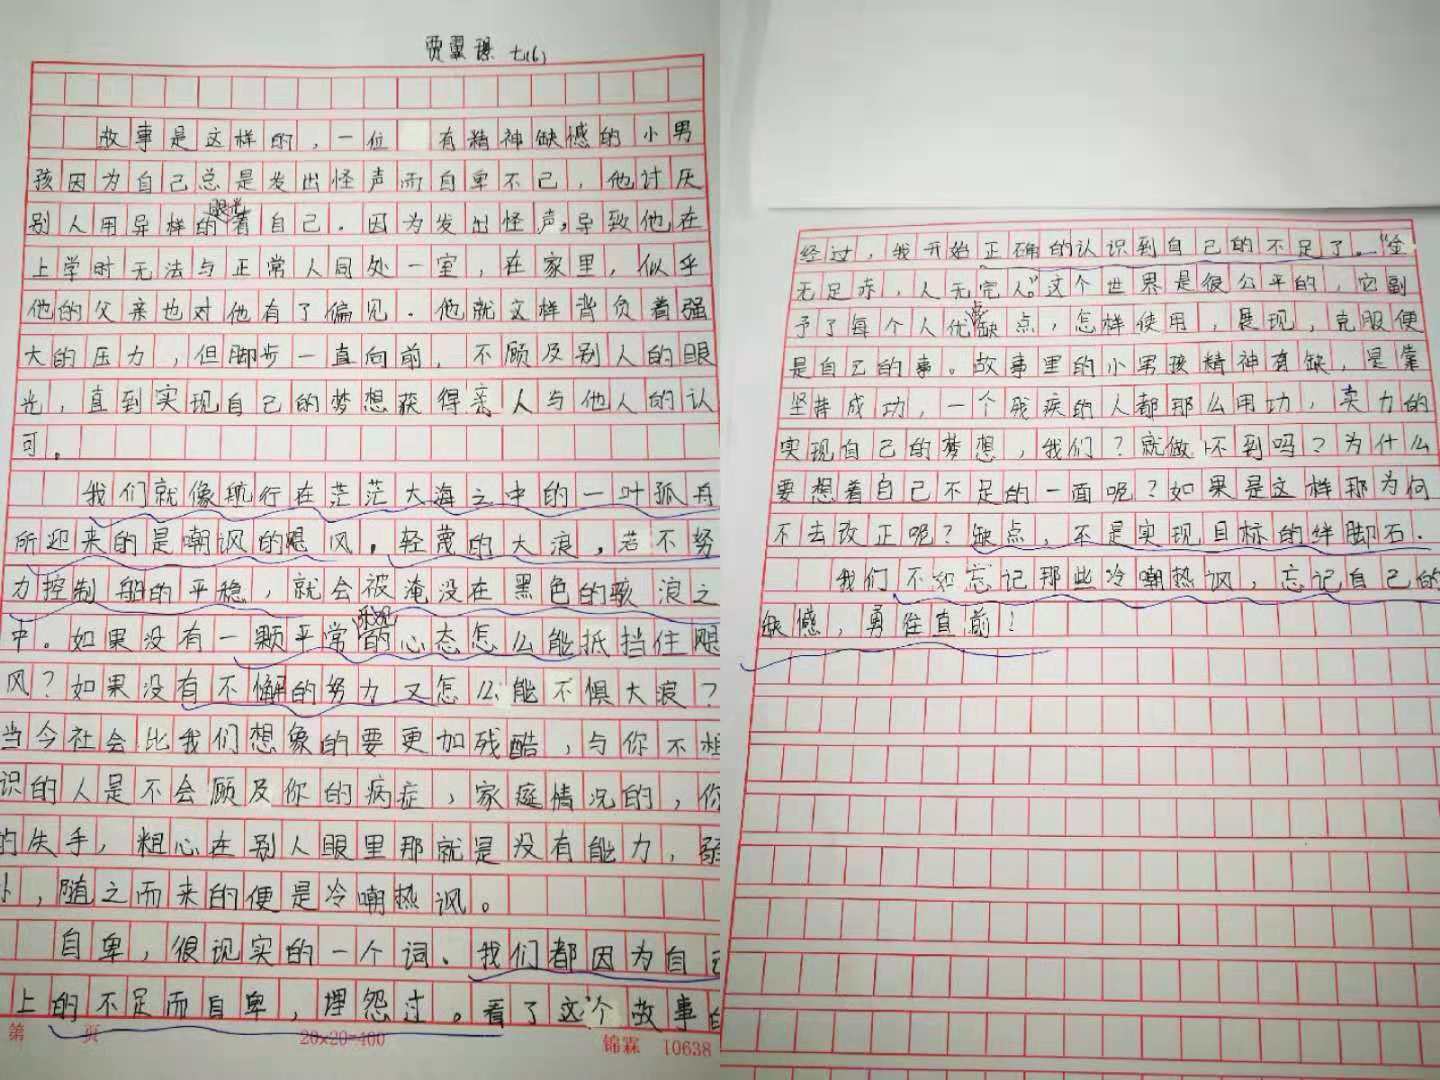 贾 七(6)
故事是这样的，一位 有精神缺憾的小男
孩因为自己总是发出怪声而自卑不已，他讨厌
别人用异样的眼光看自己．因为发出怪声，导致他在
上学时无法与正常人同处一室，在家里，似乎
他的父亲也对他有了偏见．他就这样背负着强
大的压力，但脚步一直向前，不顾及别人的眼
光，直到实现自己的梦想获得亲人与他人的认
可。
我们就像航行在茫茫大海之中的一叶孤舟
所迎来的是嘲讽的飓风，轻蔑的大浪，若不努
力控制船的平稳，就会被淹没在黑色的骇浪之
中。如果没有一颗平常乐观的心态怎么能抵挡住飓
风？如果没有不懈的努力又怎么能不惧大浪？
当今社会比我们想象的要更加残酷，与你不相
识的人是不会顾及你的病症，家庭情况的，你
的失手，粗心在别人眼里那就是没有能力，
，随之而来的便是冷嘲热讽。
自卑，很现实的一个词、我们都因为自
上的不足而自卑，埋怨过。看了这个故事的
第 页 20×20=400 锦霖 10638
经过，我开始正确的认识到自己的不足了。“金
无足赤，人无完人”这个世界是很公平的，它副
予了每个人优点缺点，怎样使用，展现，克服便
是自己的事。故事里的小男孩精神有缺，是靠
坚持成功，一个残疾的人都那么用功，卖力的
实现自己的梦想，我们？就做不到吗？为什么
要想着自己不足的一面呢？如果是这样那为何
不去改正呢？缺点，不是实现目标的绊脚石．
我们不如忘记那些冷嘲热讽，忘记自己的
缺憾，勇往直前！